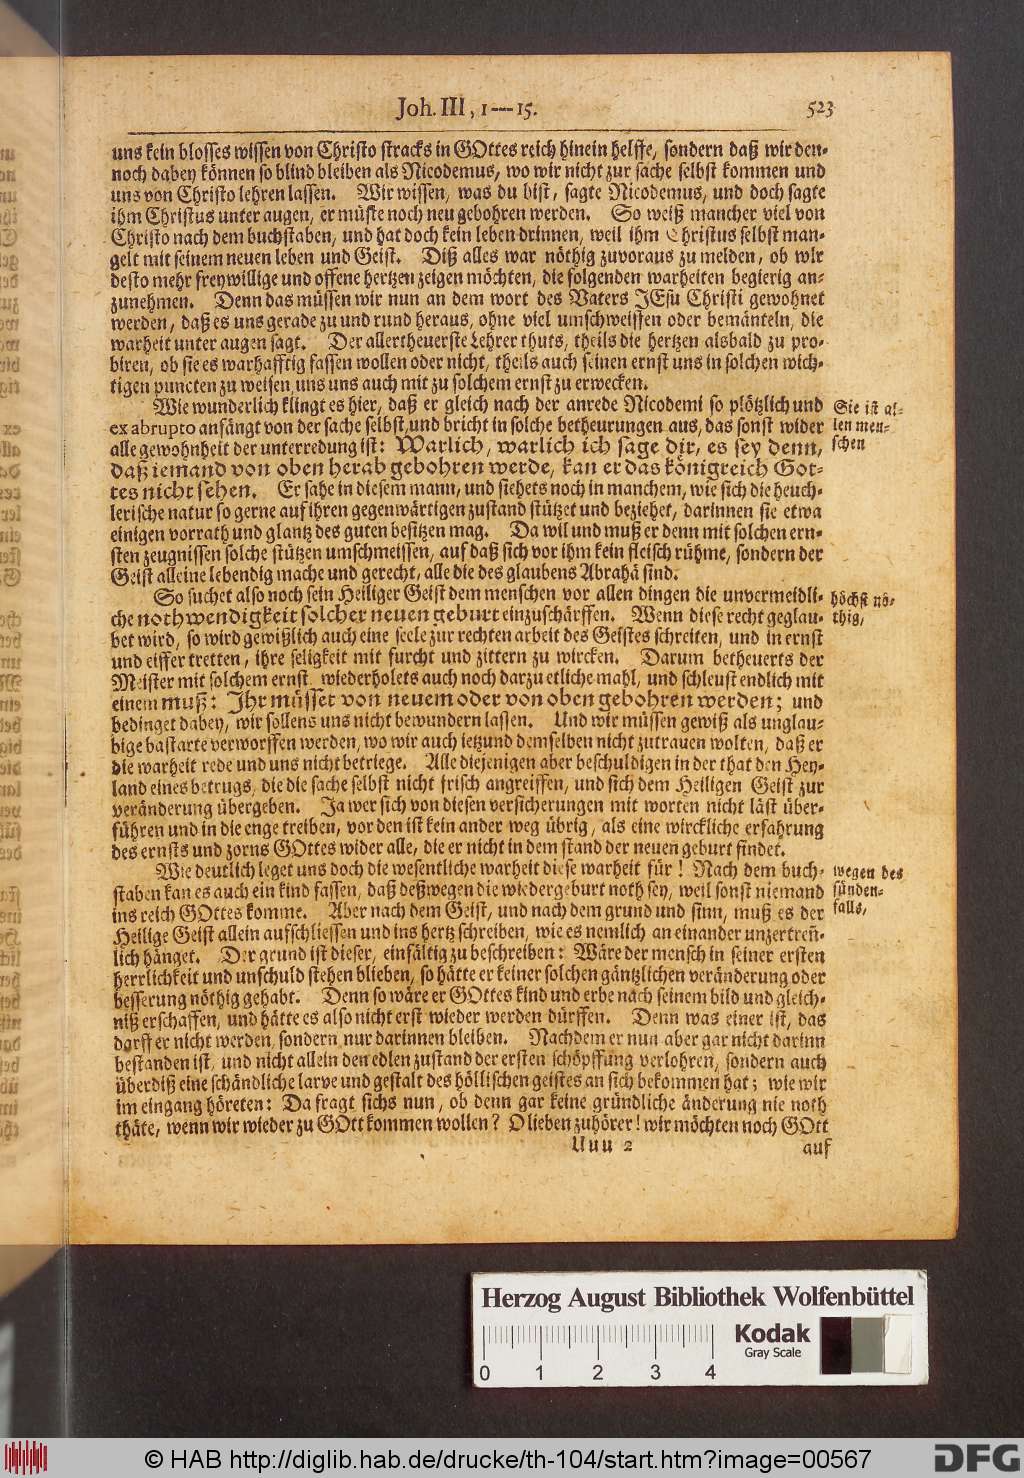 Joh. III, 1—15. 523
uns kein blosses wissen von Christo stracks in GOttes reich hinein helffe, sondern daß wir den-
noch dabey können so blind bleiben als Nicodemus, wo wir nicht zur sache selbst kommen und
uns von Christo lehren lassen. Wir wissen, was du bist, sagte Nicodemus, und doch sagte
ihm Christus unter augen, er müste noch neu gebohren werden. So weiß mancher viel von
Christo nach dem buchstaben, und hat doch kein leben drinnen, weil ihm Christus selbst man-
gelt mit seinem neuen leben und Geist. Diß alles war nöthig zuvoraus zu melden, ob wir
desto mehr freywillige und offene hertzen zeigen möchten, die folgenden warheiten begierig an-
zunehmen. Denn das müssen wir nun an dem wort des Vaters JEsu Christi gewohnet
werden, daß es uns gerade zu und rund heraus, ohne viel umschweiffen oder bemänteln, die
warheit unter augen sagt. Der allertheuerste Lehrer thuts, theils die hertzen alsbald zu pro-
biren, ob sie es warhafftig fassen wollen oder nicht, theils auch seinen ernst uns in solchen wich-
tigen puncten zu weisen, uns uns auch mit zu solchem ernst zu erwecken.
Wie wunderlich klingt es hier, daß er gleich nach der anrede Nicodemi so plötzlich und
ex abrupto anfängt von der sache selbst, und bricht in solche betheurungen aus, das sonst wider
alle gewohnheit der unterredung ist: Warlich, warlich ich sage dir, es sey denn,
daß iemand von oben herab gebohren werde, kan er das königreich Got-
tes nicht sehen. Er sahe in diesem mann, und siehets noch in manchem, wie sich die heuch-
lerische natur so gerne auf ihren gegenwärtigen zustand stützet und beziehet, darinnen sie etwa
einigen vorrath und glantz des guten besitzen mag. Da wil und muß er denn mit solchen ern-
sten zeugnissen solche stützen umschmeissen, auf daß sich vor ihm kein fleisch rühme, sondern der
Geist alleine lebendig mache und gerecht, alle die des glaubens Abrahä sind.
Sie ist al-
len men-
schen
So suchet also noch sein Heiliger Geist dem menschen vor allen dingen die unvermeidli-
che nothwendigkeit solcher neuen geburt einzuschärffen. Wenn diese recht geglau-
bet wird, so wird gewißlich auch eine seele zur rechten arbeit des Geistes schreiten, und in ernst
und eiffer tretten, ihre seligkeit mit furcht und zittern zu wircken. Darum betheuerts der
Meister mit solchem ernst, wiederholets auch noch darzu etliche mahl, und schleust endlich mit
einem muß: Ihr müsset von neuem oder von oben gebohren werden; und
bedinget dabey, wir sollens uns nicht bewundern lassen. Und wir müssen gewiß als unglau-
bige bastarte verworffen werden, wo wir auch ietzund demselben nicht zutrauen wolten, daß er
die warheit rede und uns nicht betriege. Alle diejenigen aber beschuldigen in der that den Hey-
land eines betrugs, die die sache selbst nicht frisch angreiffen, und sich dem Heiligen Geist zur
veränderung übergeben. Ja wer sich von diesen versicherungen mit worten nicht läst über-
führen und in die enge treiben, vor den ist kein ander weg übrig, als eine wirckliche erfahrung
des ernsts und zorns GOttes wider alle, die er nicht in dem stand der neuen geburt findet.
höchst nö-
thig,
Wie deutlich leget uns doch die wesentliche warheit diese warheit für! Nach dem buch-
staben kan es auch ein kind fassen, daß deßwegen die wiedergeburt noth sey, weil sonst niemand
ins reich GOttes komme. Aber nach dem Geist, und nach dem grund und sinn, muß es der
Heilige Geist allein aufschliessen und ins hertz schreiben, wie es nemlich an einander unzertreñ-
lich hänget. Der grund ist dieser, einfältig zu beschreiben: Wäre der mensch in seiner ersten
herrlichkeit und unschuld stehen blieben, so hätte er keiner solchen gäntzlichen veränderung oder
besserung nöthig gehabt. Denn so wäre er GOttes kind und erbe nach seinem bild und gleich-
niß erschaffen, und hätte es also nicht erst wieder werden dürffen. Denn was einer ist, das
darff er nicht werden, sondern nur darinnen bleiben. Nachdem er nun aber gar nicht darinn
bestanden ist, und nicht allein den edlen zustand der ersten schöpffung verlohren, sondern auch
überdiß eine schändliche larve und gestalt des höllischen geistes an sich bekommen hat; wie wir
im eingang höreten: Da fragt sichs nun, ob denn gar keine gründliche änderung nie noth
thäte, wenn wir wieder zu GOtt kommen wollen? O lieben zuhörer! wir möchten noch GOtt
wegen des
sünden-
falls,
Uuu 2 auf
Herzog August Bibliothek Wolfenbüttel
Kodak
Gray Scale
0 1 2 3 4
© HAB http://diglib.hab.de/drucke/th-104/start.htm?image=00567
DFG